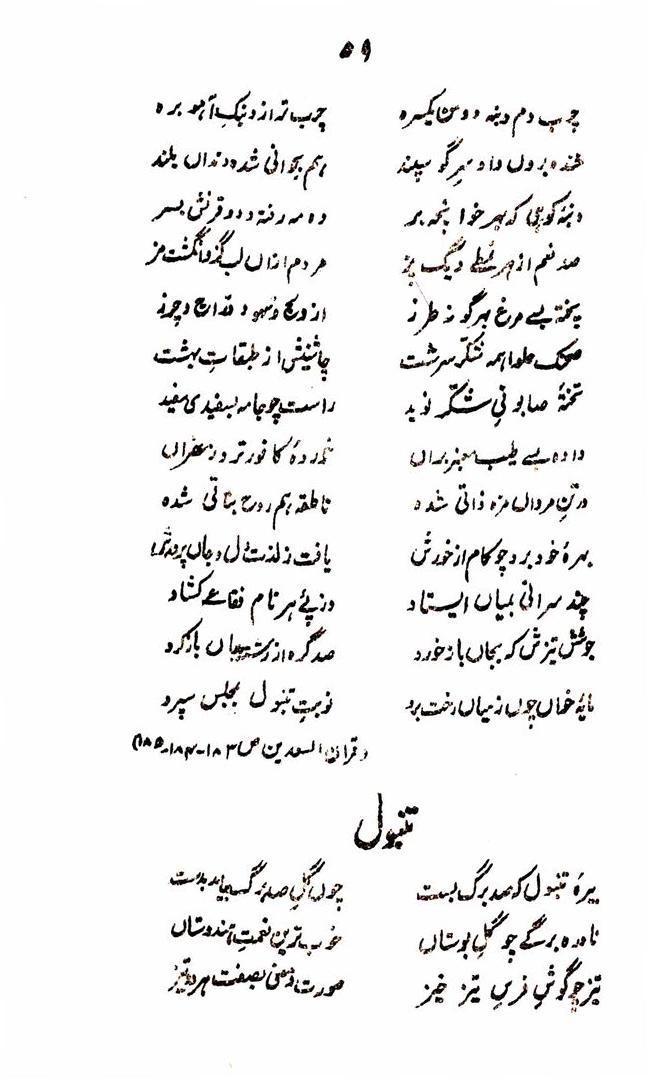 ۵۹
چرب دم دنبہ دو من یکسرہ چرب تر از دنبک آہو برہ
خندہ بروں داد سرِ گوسپند ہم بجوانی شدہ دنداں بلند
دنبۂ کوہی کہ بہر خوا پنجہ بر دہ مہ رفتہ و دو قرنش بسر
صد نعم از ہر نمطے دیگ پز مردم ازاں لب گز و انگشت مز
پختہ بسے مرغ بہر گونہ طرز از و تیہو و دراج و چرز
صحنک حلوا ہمہ شکر سرشت چاشنیش از طبقاتِ بہشت
تختۂ صابونیِ شکر نوید راست چو جامہ بسفیدی سفید
دادہ بسے طیب معنبر براں کافور تر و زعفراں
در تنِ مرداں مزہ ذاتی شدہ ناطقہ ہم روح بناتی شدہ
بہرۂ خود برد چو کام از خورش یافت ز لذت دل و جاں پرورش
چند سرائی بمیاں ایستاد وز پئے ہر نام فقاعے کشاد
جوشش تیزش کہ بجاں باز خورد صد گرہ از رشتہ جاں باز کرد
مایۂ خواں چوں ز میاں رخت برد نوبتِ تنبول بمجلس سپرد
(قران السعدین ص ۱۸۳-۱۸۴-۱۸۵)
تنبول
بیرۂ تنبول کہ صد برگ بست چوں گلِ صد برگ بیامد بدست
نادرہ برگے چو گلِ بوستاں خوب ترین نعمتِ ہندوستاں
تیز چو گوشِ فرسِ تیز خیز صورت و معنی بصفت ہر دو تیز